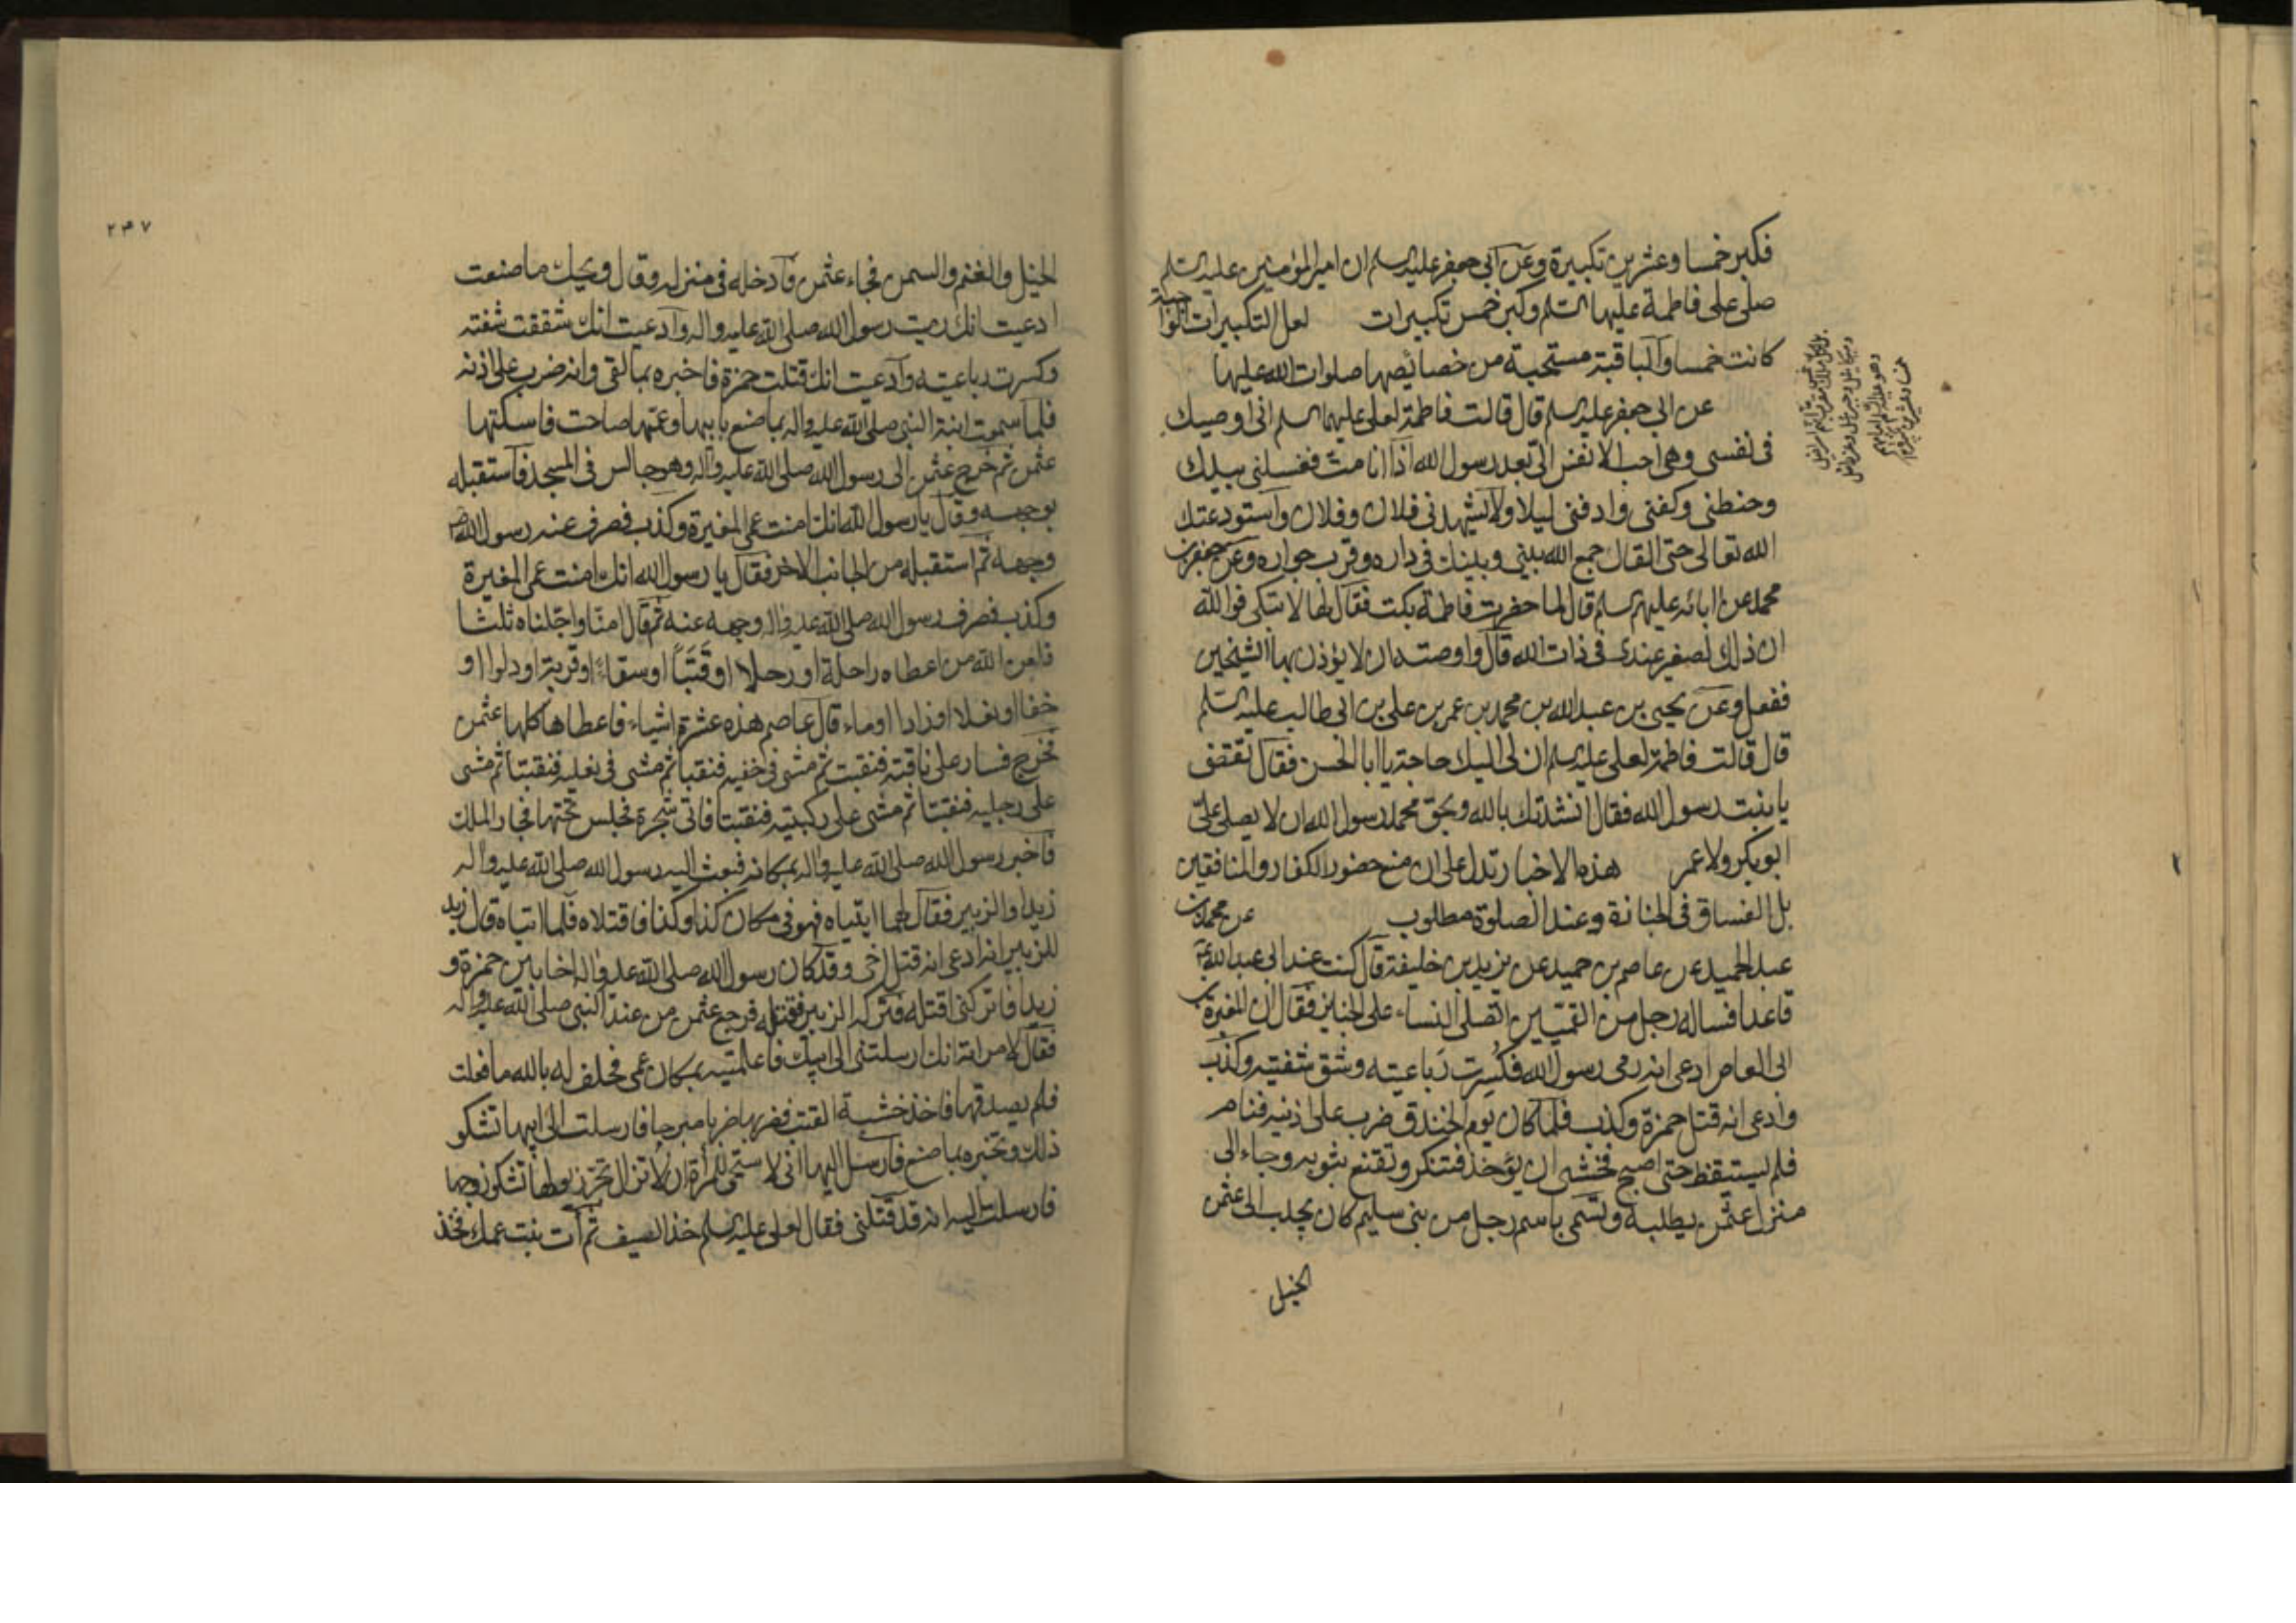 فكبر خمسا وعشرين تكبيرة وعن ابي جعفر عليه السلم ان امير المؤمنين عليه السلم
صلى على فاطمة عليها السلم وكبر خمس تكبيرات لعل التكبيرات
كانت خمسا والباقية مستحبة من خصائصها صلوات الله عليها
عن ابي جعفر عليه السلم قال قالت فاطمة لعلى عليهما السلم انى اوصيك
فى نفسى وهى احب الانفس الى بعد رسول الله اذا انا مت فغسلنى بيدك
وحنطنى وكفنى وادفنى ليلا ولا يشهدنى فلان وفلان واستودعتك
الله تعالى حتى القاك جمع الله بينى وبينك فى داره وقرب جواره وعن جعفر بن
محمد عن ابائه عليهم السلم قال لما حضرت فاطمة بكت فقال لها لا تبكى فوالله
ان ذلك لصغير عندى فى ذات الله قال واوصته ان لا يؤذن بها الشيخين
ففعل وعن يحيى بن عبد الله بن محمد بن عمر بن على بن ابى طالب عليه السلم
قال قالت فاطمة لعلى عليه السلم ان لى اليك حاجة يا ابا الحسن فقال تقضى
يا بنت رسول الله فقال انشدتك بالله وبحق محمد رسول الله ان لا يصلى على
ابو بكر ولا عمر هذه الاخبار تدل على ان منع حضور الكفار والمنافقين
بل الفساق فى الجنازة وعند الصلوة مطلوب عن محمد بن
عبد الحميد عن عاصم بن حميد عن يزيد بن خليفة قال كنت عند ابى عبد الله ع
قاعدا فساله رجل من القميين اتصلى النساء على الجنايز فقال ان المغيرة بن
ابى العاص ادعى انه رمى رسول الله فكسرت رباعيته وشق شفتيه وكذب
وادعى انه قتل حمزة وكذب فلما كان يوم الخندق ضرب على اذنيه فنام
فلم يستيقظ حتى اصبح فخشى ان يؤخذ فتنكر وتقنع بثوبه وجاء الى
منزل عثمن يطلبه وتسمى باسم رجل من بنى سليم كان يجلب الى عثمن
الخيل
٢٤٧
الخيل والغنم والسمن فجاء عثمن فادخله فى منزله وقال ويحك ما صنعت
ادعيت انك رميت رسول الله صلى الله عليه واله وادعيت انك شققت شفته
وكسرت رباعيته وادعيت انك قتلت حمزة فاخبره بما لقى وانه ضرب على اذنه
فلما سمعت ابنة النبى صلى الله عليه واله بما صنع بابيها وعمها صاحت فاسكتها
عثمن ثم خرج عثمن الى رسول الله صلى الله عليه واله وهو جالس فى المسجد فاستقبله
بوجهه وقال يا رسول الله انك امنت عمى المغيرة وكذب فصرف عنه رسول الله ص
وجهه ثم استقبله من الجانب الاخر فقال يا رسول الله انك امنت عمى المغيرة
وكذب فصرف رسول الله صلى الله عليه واله وجهه عنه ثم قال امنا واجلناه ثلثا
فلعن الله من اعطاه راحلة او رحلا او قتبا او سقاء او قربة او دلوا او
خفا او نعلا او زادا او ماء قال عاصم هذه عشرة اشياء فاعطاها كلها عثمن
فخرج فسار على ناقته فنقبت ثم مشى فى خفيه فنقبا ثم مشى فى نعليه فنقبتا ثم مشى
على رجليه فنقبتا ثم مشى على ركبتيه فنقبتا فاتى شجرة فجلس تحتها فجاء الملك
فاخبر رسول الله صلى الله عليه واله بمكانه فبعث اليه رسول الله صلى الله عليه واله
زيدا والزبير فقال لهما ايتياه فهو فى مكان كذا وكذا فاقتلاه فلما اتياه قال زيد
للزبير انه ادعى انه قتل اخى وقد كان رسول الله صلى الله عليه واله اخا بين حمزة و
زيد فاتركنى اقتله فتركه الزبير فقتله فرجع عثمن من عند النبى صلى الله عليه واله
فقال لامراته انك ارسلتنى الى ابيك فاعلمتيه بمكان عمى فحلفت له بالله ما فعلت
فلم يصدقها فاخذ خشبة القتب فضربها ضربا مبرحا فارسلت الى ابيها تشكو
ذلك وتخبره بما صنع فارسل اليها انى لا ستحيى للمراة ان لا تزال تجر ذيولها تشكو زوجها
فارسلت اليه انه قد قتلنى فقال لعلى عليه السلم خذ السيف ثم ات بنت عمك فخذ